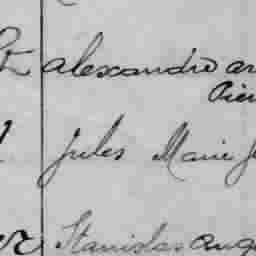 alexandre ar
Pier
Jules Marie J
Stanislas aug